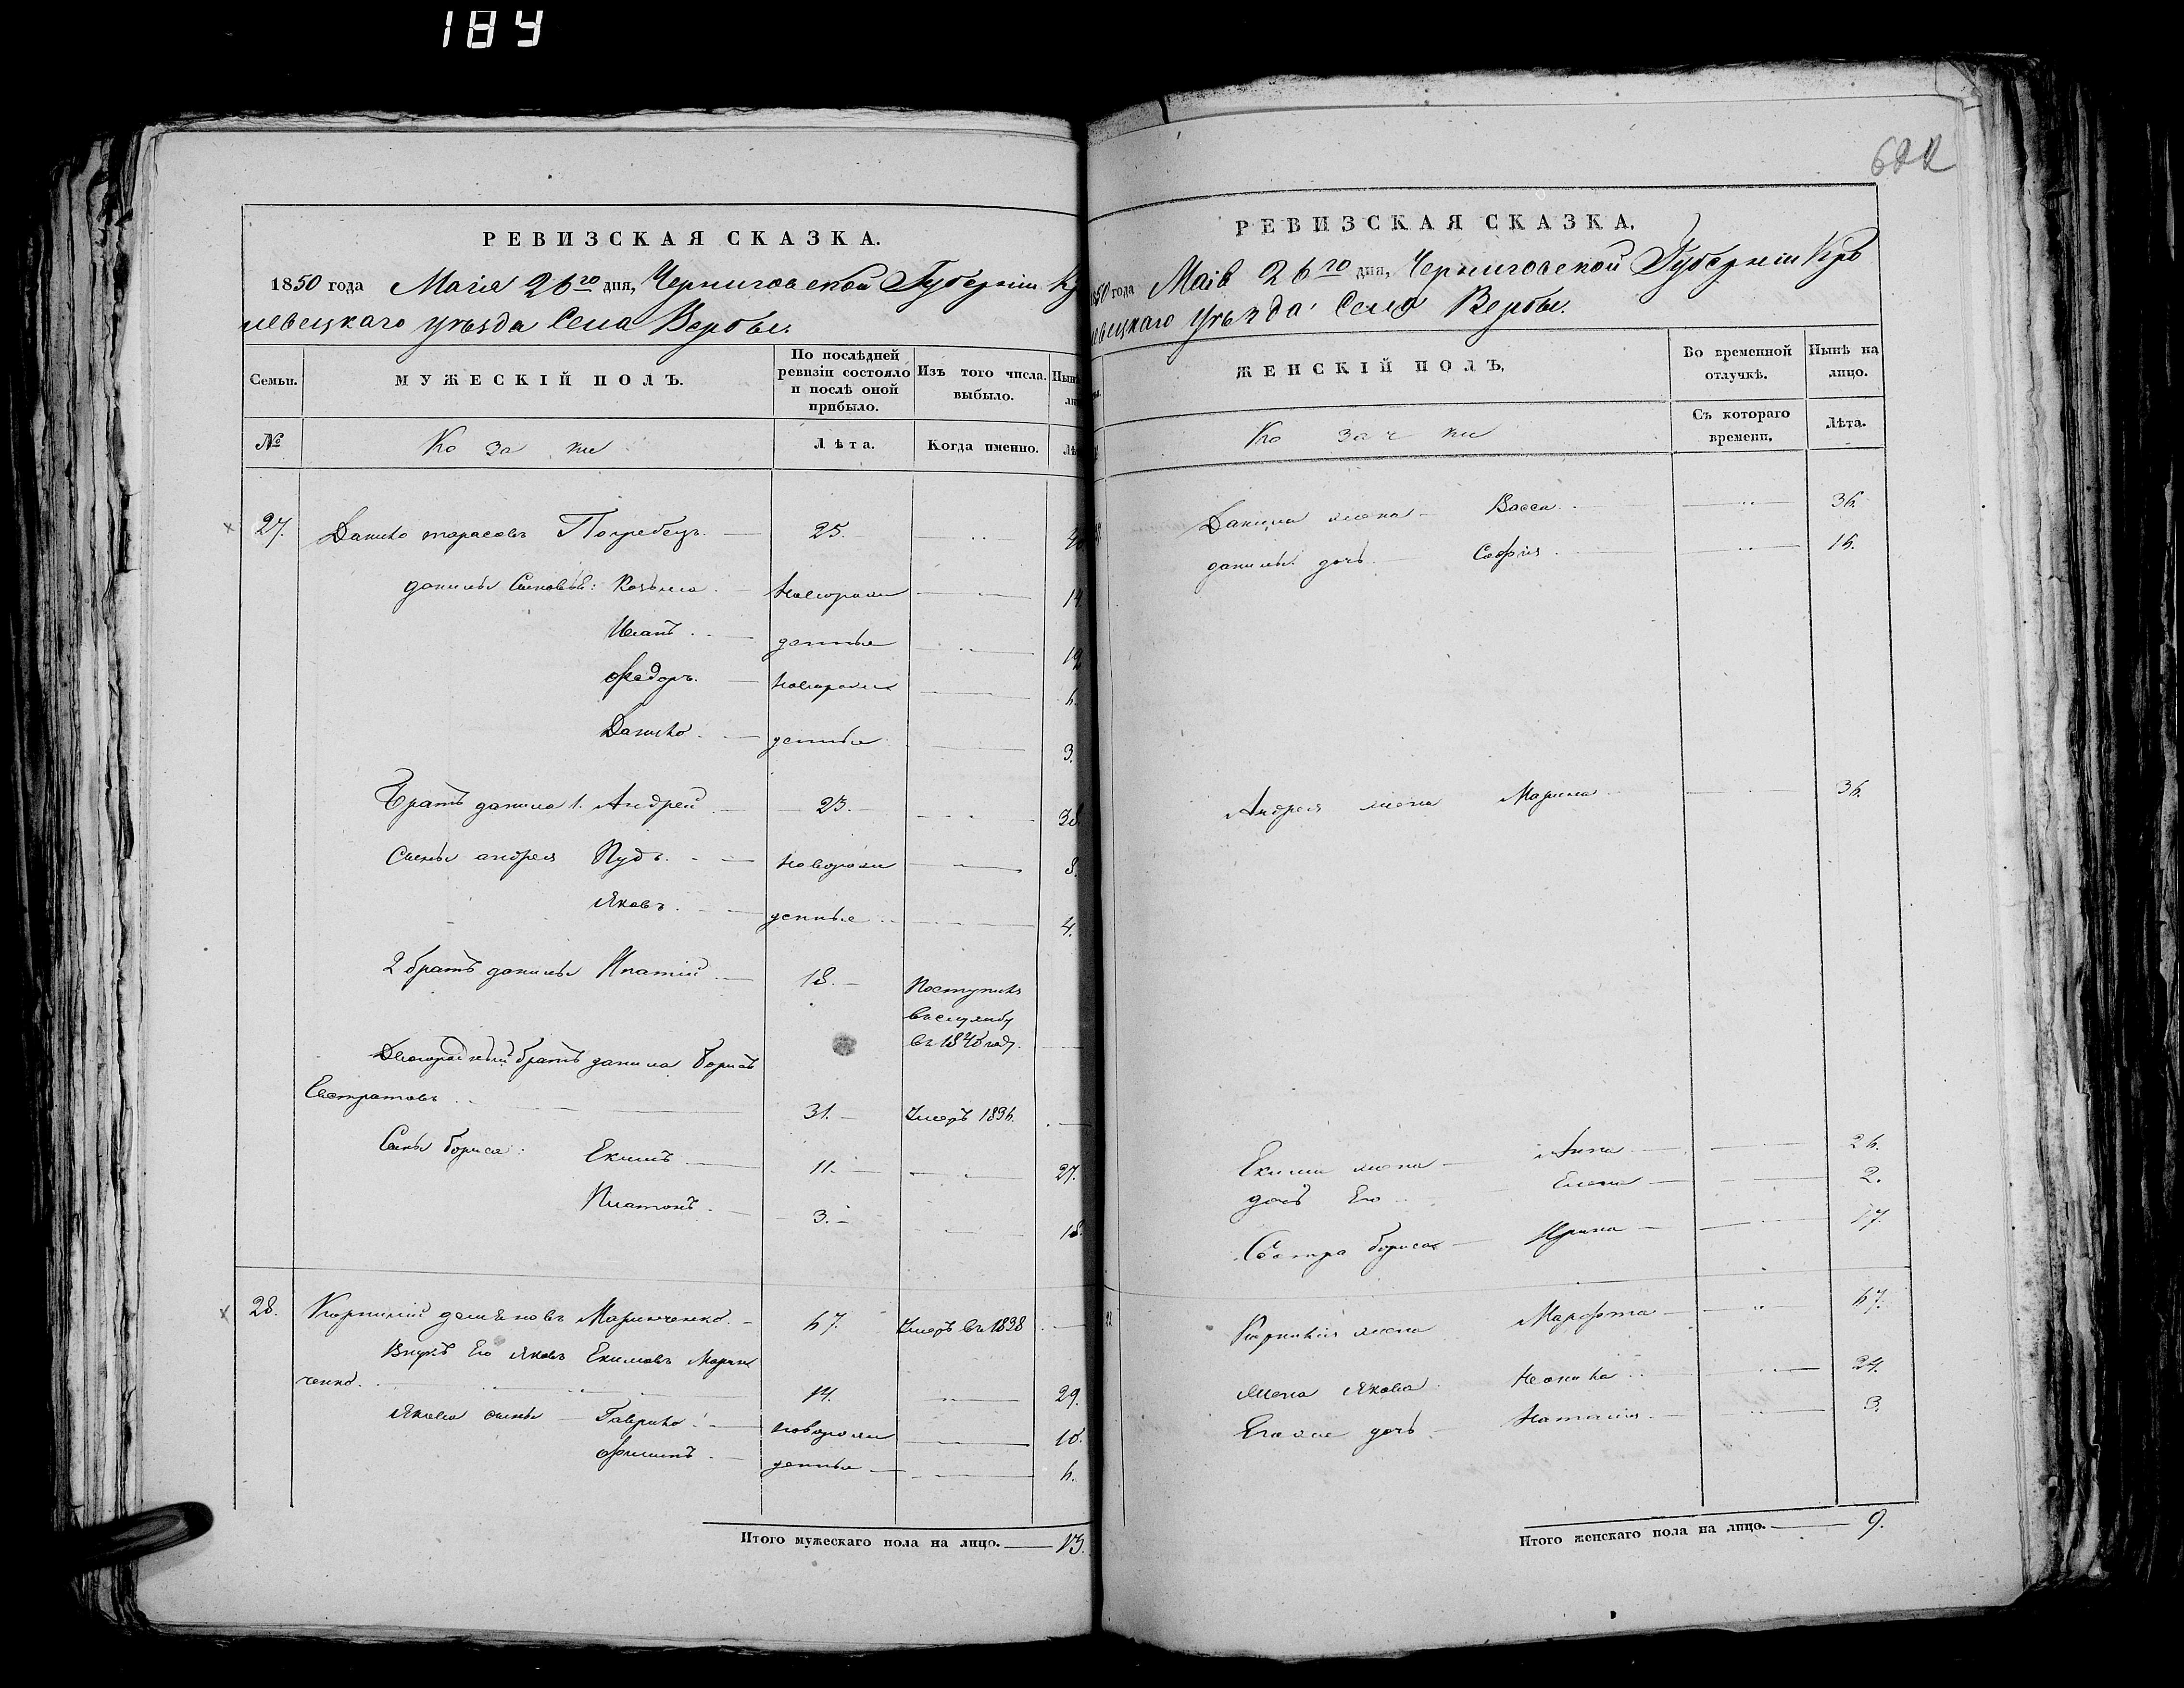 184
РЕВИЗСКАЯ СКАЗКА.
1850 года Маія 26го дня, Черниговской Губерніи Кр
левецкаго уѣзда Села Вербы.
Семьи.
МУЖЕСКІЙ ПОЛЪ.
По послѣдней ревизіи состояло и послѣ оной прибыло.
Изъ того числа выбыло.
№
Ко за ки
Лѣта.
Когда именно.
27. Данило тарасовъ 25.
данилы Сыновья: Козьма новорож 14
Иванъ денные 12
Федоръ новорож 6.
Данило денные 3.
Братъ данила 1. Андрей 23. 38.
Сыны андрея Пудъ новорож 8.
Яковъ денные 4.
2 братъ данилы Ипатій 18. Поступилъ
въ службу
въ 1840 году.
Двоюродный братъ данила Борисъ
Евстратовъ 31. Умеръ 1836.
Сыны бориса: Екимъ 11. 27.
Платонъ 3. 18.
28. Корнилій демяновъ Маринченко. 67. Умеръ въ 1838
Внукъ Его Яковъ Екимовъ Марин
ченко. 14. 29.
Якова сыны Гаврило новорож 10.
Филипъ денные 6.
Итого мужескаго пола на лицо. 13.
622
РЕВИЗСКАЯ СКАЗКА.
1850 года Маія 26го дня, Черниговской Губерніи Кро
левецкаго уѣзда Села Вербы.
ЖЕНСКІЙ ПОЛЪ.
Во временной отлучкѣ.
Нынѣ на лицо.
Ко зач ки
Съ котораго времени.
Лѣта.
Данила жена Васса 36.
данилы дочь Софія 16.
Андрея жена Марина 36.
Екима жена Анна 26.
дочь Его Елена 2.
Сестра бориса Ирина 17.
Корнилія жена Марфа 67.
жена Якова Неонила 24.
Его же дочь Наталія 3.
Итого женскаго пола на лицо. 9.